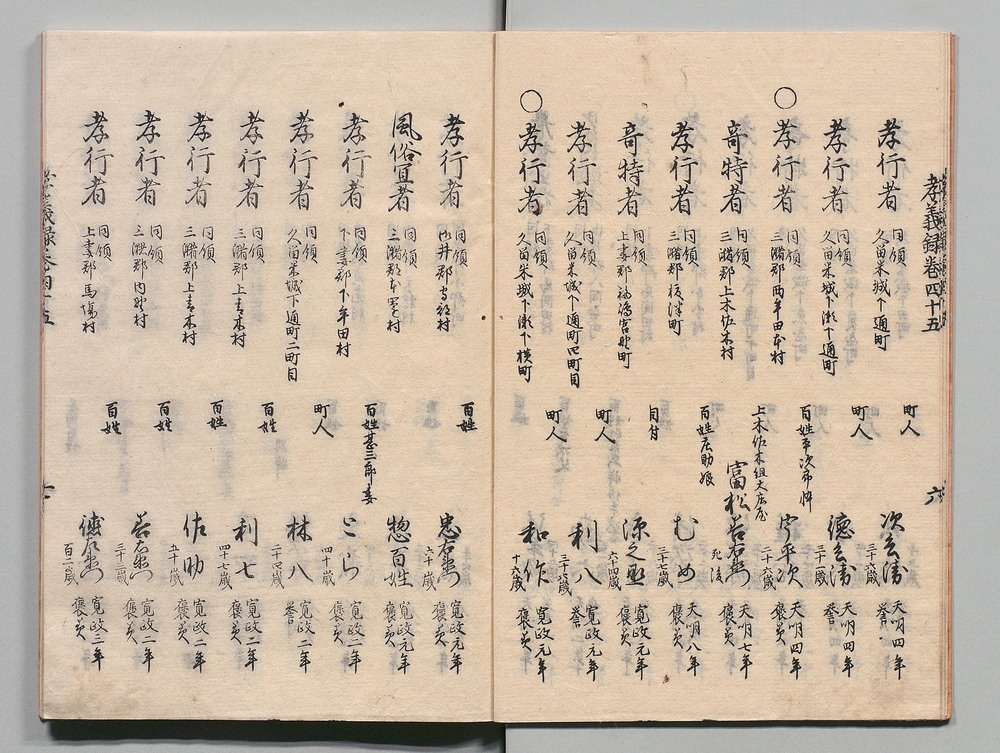 孝義録巻四十五
孝行者 同領 久留米城下通町 町人 次兵衛 三十六歳 天明四年 誉
孝行者 同領 久留米城下瀬下通町 町人 徳兵衛 三十一歳 天明四年 誉
○孝行者 同領 三潴郡両牟田本村 百姓平次郎忰 宇平次 二十六歳 天明四年 褒美
奇特者 同領 三潴郡上木佐木村 上木佐木組大庄屋 富松 死後 天明七年 褒美
孝行者 同領 三潴郡 町 百姓庄助娘 むめ 三十七歳 天明八年 褒美
奇特者 同領 上妻郡福嶋宮野町 目付 源之丞 六十四歳 寛政元年 褒美
孝行者 同領 久留米城下通町四町目 町人 利八 三十八歳 寛政元年 誉
○孝行者 同領 久留米城下瀬下横町 町人 和作 十六歳 寛政元年 褒美
六
孝行者 同領 御井郡 村 百姓 忠右衛門 六十歳 寛政元年 褒美
風俗宜者 同領 三潴郡 村 惣百姓 寛政元年 褒美
孝行者 同領 下妻郡下牟田村 百姓甚三郎妻 とら 四十歳 寛政二年 褒美
孝行者 同領 久留米城下通町二町目 町人 林八 二十四歳 寛政二年 誉
孝行者 同領 三潴郡上青木村 百姓 利七 四十七歳 寛政二年 褒美
孝行者 同領 三潴郡上青木村 百姓 佐助 五十歳 寛政二年 褒美
孝行者 同領 三潴郡内野村 百姓 善右衛門 三十三歳 寛政二年 褒美
孝行者 同領 上妻郡馬場村 百姓 徳左衛門 百二歳 寛政三年 褒美